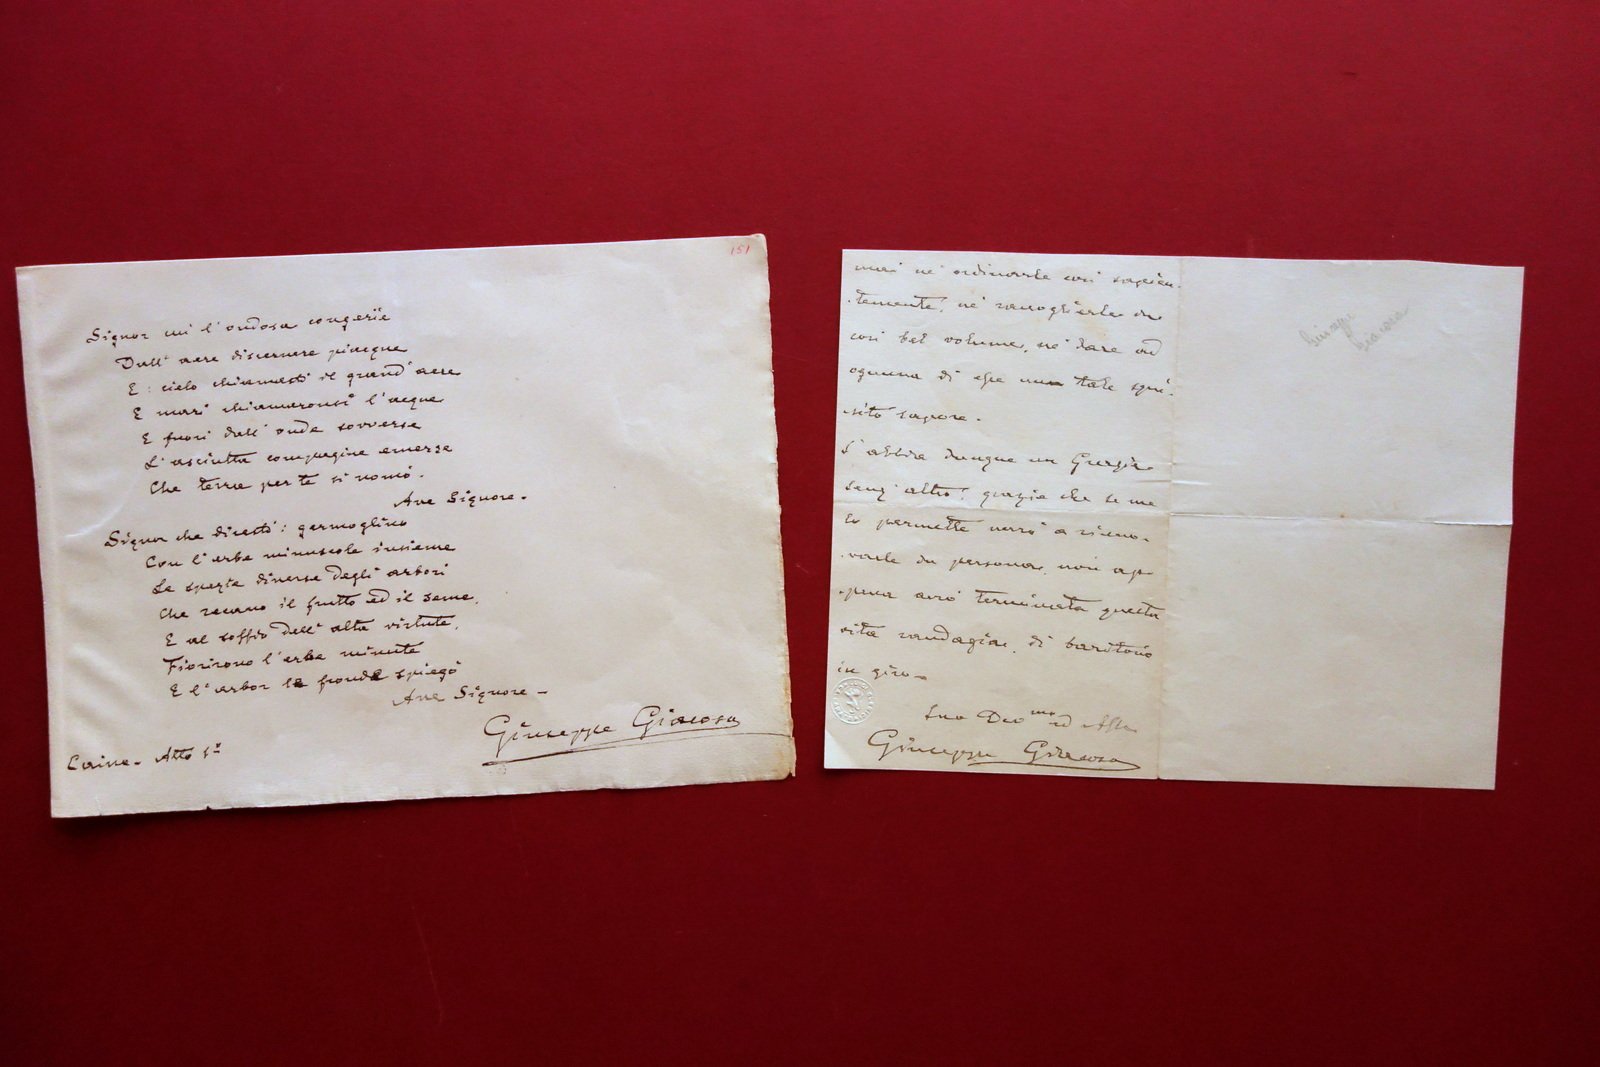 151
Signor cui l'ondosa congerie
Dall'aere discernere piacque
E: cielo chiamasti il grand'aere
E mari chiamaronsi l'acque
E fuori dall'onde sovverse
L'asciutta compagine emerse
Che terra per te si nomò.
Ave Signore -
Signor che dicesti: germoglino
Con l'erbe minuscole insieme
Le specie diverse degli arbori
Che recano il frutto ed il seme,
E al soffio dell'alta virtute,
Fiorirono l'erbe minute
E l'arbor le fronde spiegò
Ave Signore -
Giuseppe Giacosa
Caino - Atto 1º
mai nè ordinarle così sapien-
-temente, nè raccoglierle in
così bel volume, nè dare ad
ognuna di esse un tale squi-
-sito sapore.
S'abbia dunque un Grazie
senz'altro, grazie che se me
lo permette verrò a rinno-
-varle di persona, non ap-
-pena avrò terminata questa
vita randagia, di baritono
in giro -
Suo Devmo ed Affo
Giuseppe Giacosa
Giuseppe
Giacosa